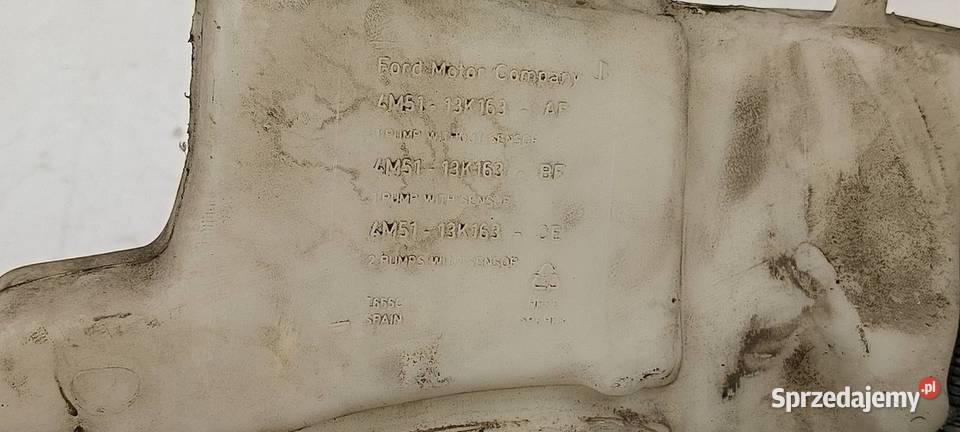 Ford Motor Company
4M51 - 13K163 - AF
1 PUMP WITHOUT SENSOR
4M51 - 13K163 - BF
1 PUMP WITH SENSOR
4M51 - 13K163 -
2 PUMPS WITH SENSOR
SPAIN
Sprzedajemy.pl